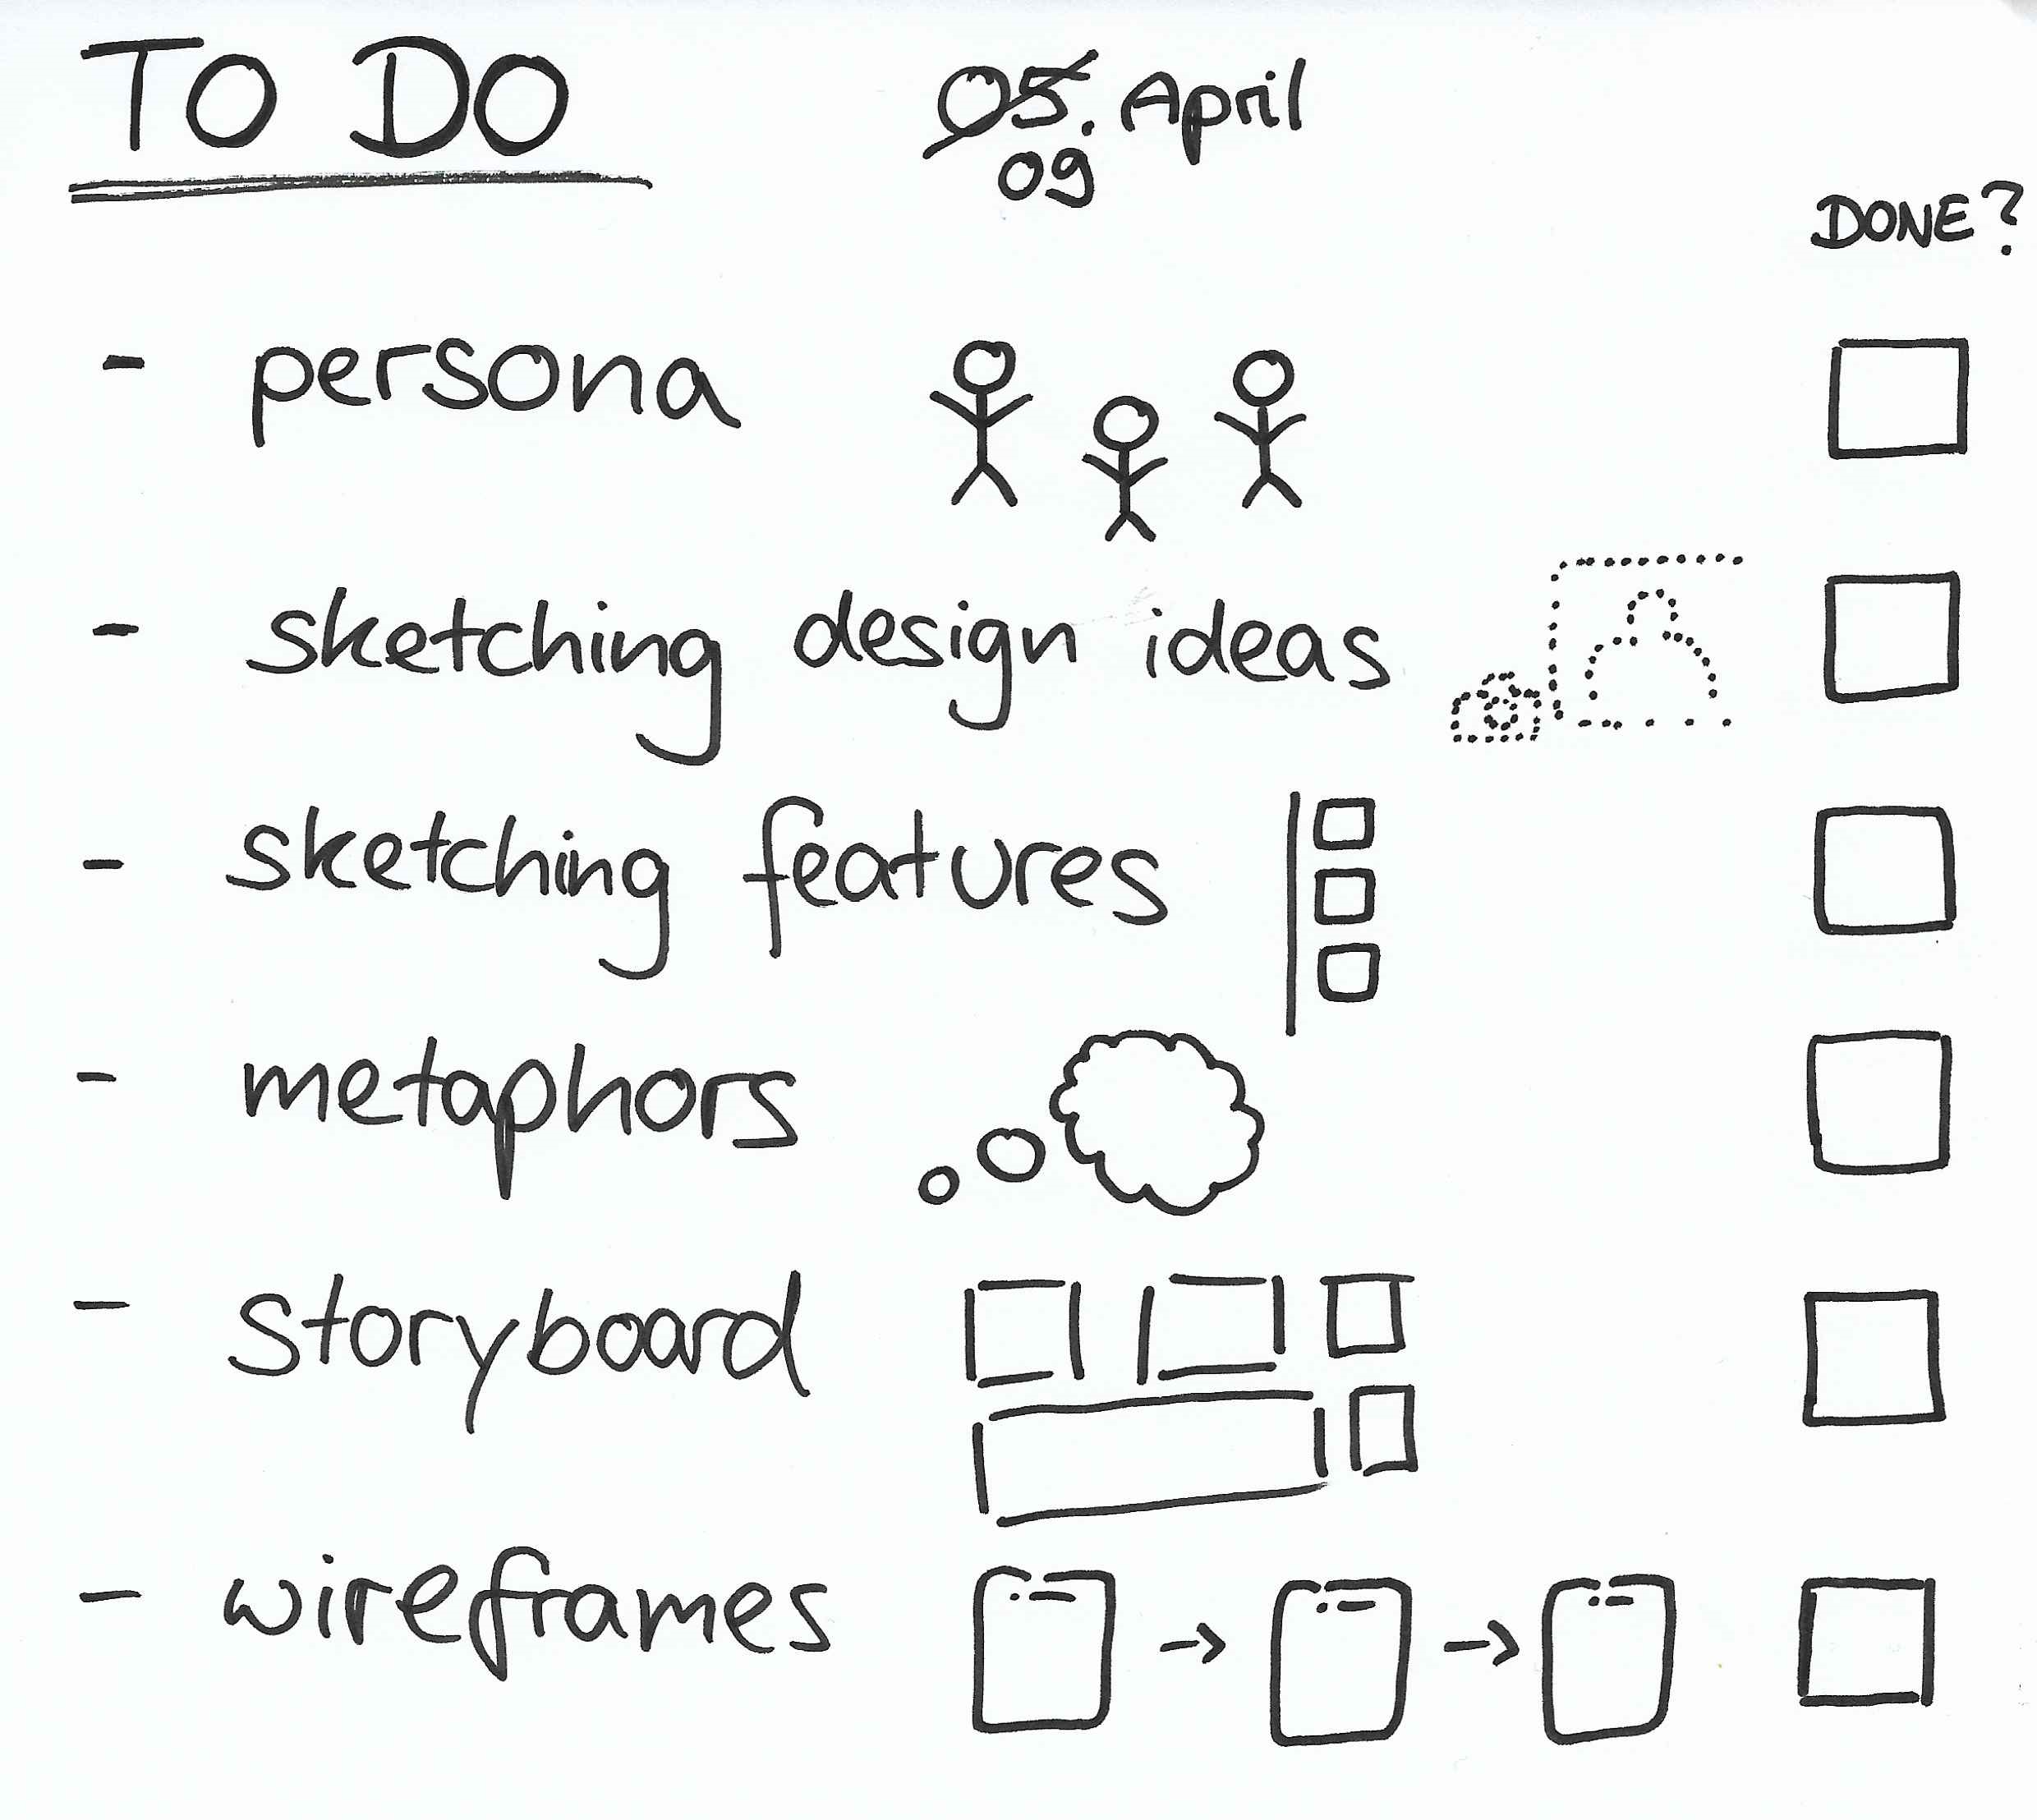 TO DO
05. April
09
DONE?
- persona
- sketching design ideas
- sketching features
- metaphors
- storyboard
- wireframes